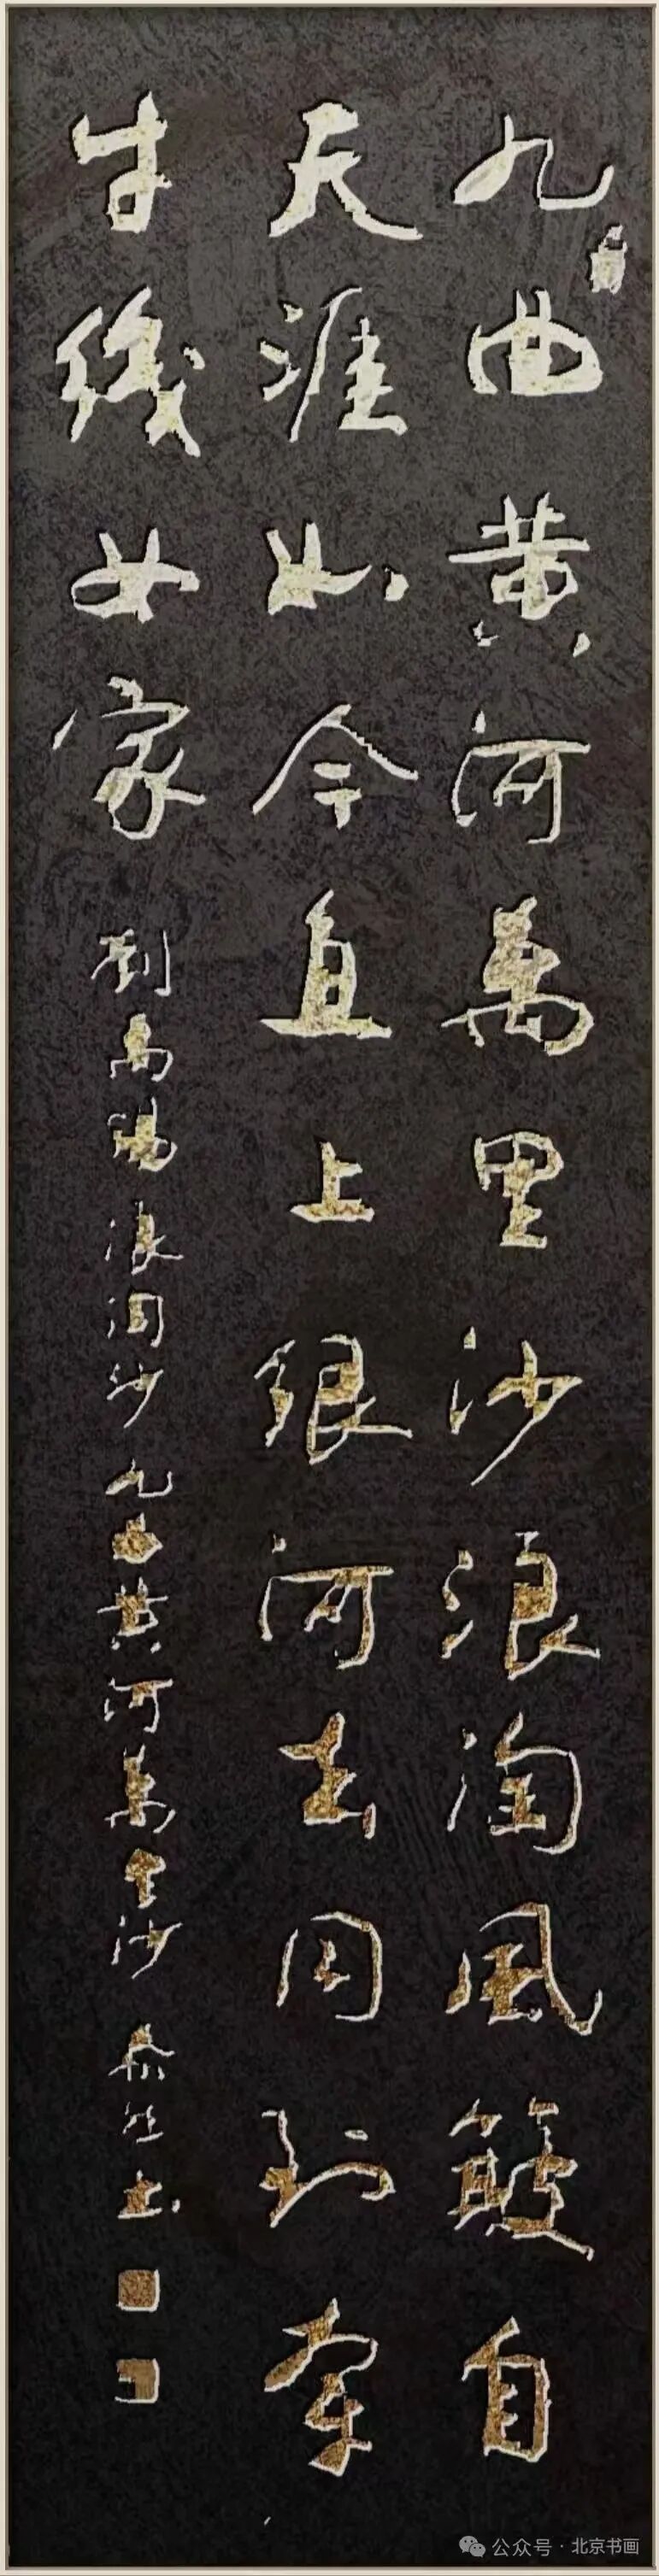 九曲黄河萬里沙浪淘風簸自
天涯如今直上銀河去同到牽
牛織女家
劉禹錫浪淘沙九曲黄河萬里沙
公众号 · 北京书画